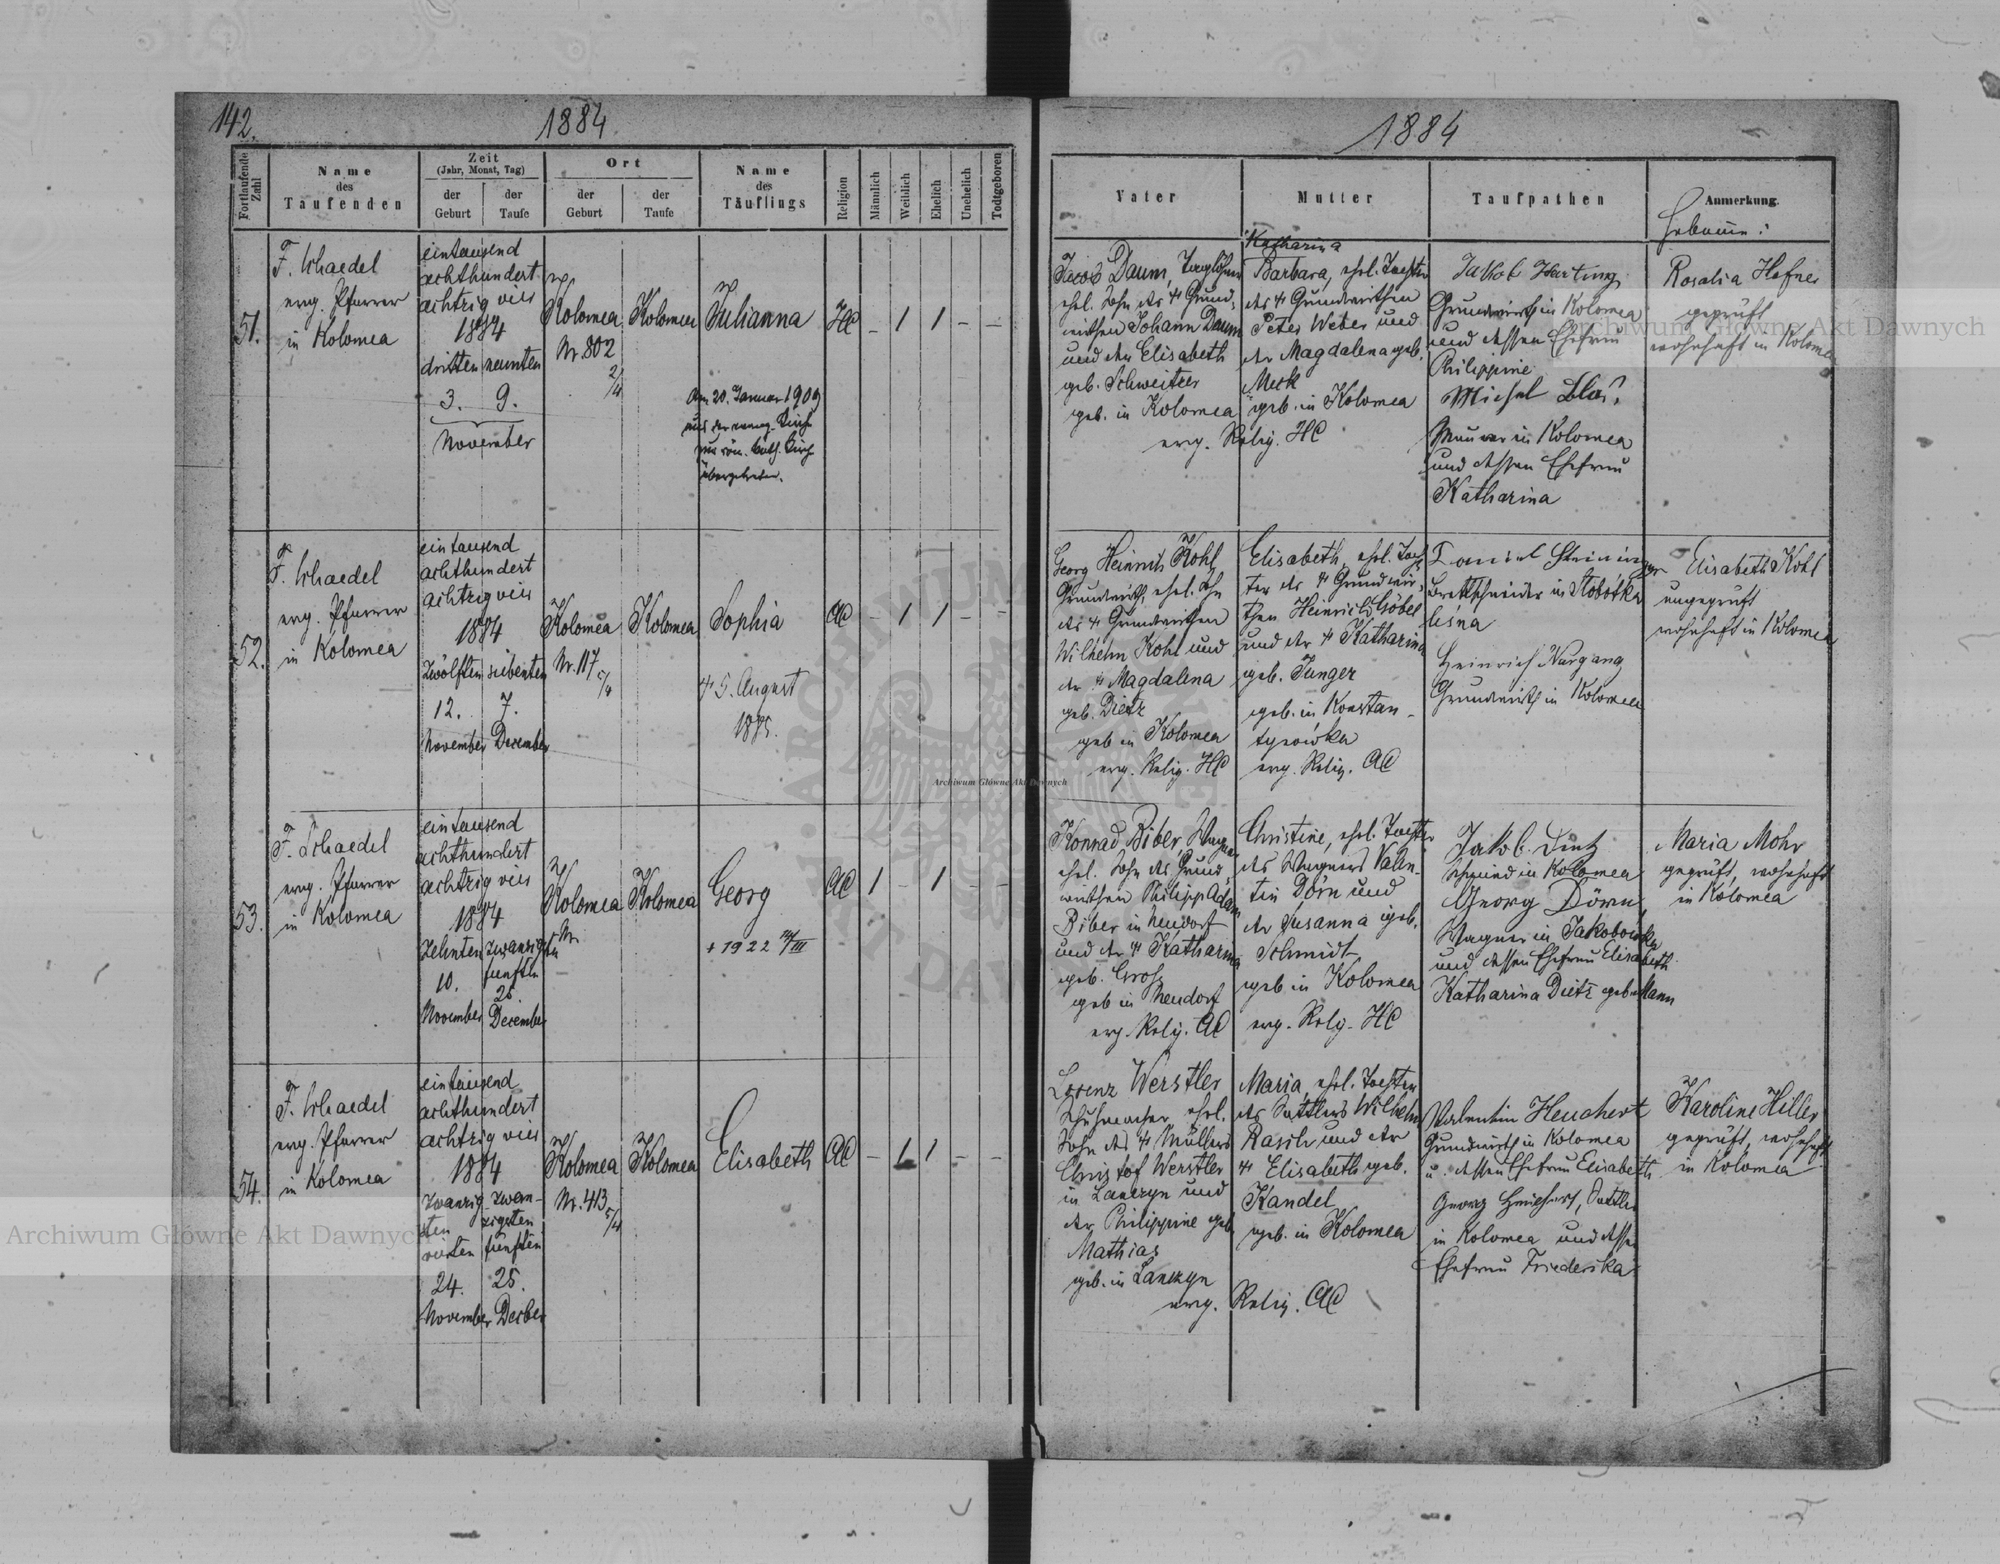 142.
1884
Fortlaufende Zahl
Name
des
Taufenden
Zeit
(Jahr, Monat, Tag)
der
Geburt
der
Taufe
Ort
der
Geburt
der
Taufe
Name
des
Täuflings
Religion
Männlich
Weiblich
Ehelich
Unehelich
Todtgeboren
51.
F. Schaedel
evg. Pfarrer
in Kolomea
eintausend
achthundert
achtzig vier
1884
dritten neunten
3. 9.
November
Kolomea
Nr. 802
2/4
Kolomea
Julianna
Am 20. Januar 1909
aus der evang. Kirche
zur röm. kath. Kirche
übergetreten.
HC - 1 1 - -
52.
F. Schaedel
evg. Pfarrer
in Kolomea
eintausend
achthundert
achtzig vier
1884
zwölften siebenten
12. 7.
November December
Kolomea
Nr. 117
5/4
Kolomea
Sophia
+ 5. August
1885.
AC - 1 1 - -
53.
F. Schaedel
evg. Pfarrer
in Kolomea
eintausend
achthundert
achtzig vier
1884
zehnten zwanzigsten
fünften
10. 25
November December
Kolomea
Nr.
Kolomea
Georg
+ 1922 14/III
AC 1 - 1 - -
54.
F. Schaedel
evg. Pfarrer
in Kolomea
eintausend
achthundert
achtzig vier
1884
zwanzig- zwan-
sten zigsten
vierten fünften
24. 25.
November Decber
Kolomea
Nr. 413
5/4
Kolomea
Elisabeth
AC - 1 1 - -
1884
Vater
Mutter
Taufpathen
Anmerkung.
Hebamme:
Jacob Daum, Taglöhner
ehl. Sohn des + Grund-
wirthen Johann Daum
und der Elisabeth
geb. Schweitzer
geb. in Kolomea
Katharina
Barbara, ehl. Tochter
des + Grundwirthen
Peter Weber und
der Magdalena geb.
Meck
geb. in Kolomea
evg. Relig. HC
Jakob Harting
Grundwirth in Kolomea
und dessen Ehefrau
Philippine
Michel
Maurer in Kolomea
und dessen Ehefrau
Katharina
Rosalia Hefner
geprüft
wohnhaft in Kolomea
Georg Heinrich Kohl
Grundwirth, ehel. Sohn
des + Grundwirthen
Wilhelm Kohl und
der + Magdalena
geb. Dietz
geb in Kolomea
evg. Relig. HC
Elisabeth, ehl. Toch-
ter des + Grundwir-
then Heinrich Göbel
und der + Katharina
geb. Junger
geb. in Konstan-
tyrówka
evg. Relig. AC
Daniel Steininger
Brettschneider in Słobódka
leśna
Heinrich Nargang
Grundwirth in Kolomea
Elisabeth Kohl
ungeprüft
wohnhaft in Kolomea
Konrad Biber, Wagner
ehel. Sohn des Grund-
wirthen Philipp Adam
Biber in Neudorf
und der + Katharina
geb. Gross
geb in Neudorf
evg. Relig. AC
Christine, ehl. Tochter
des Wagners Valen-
tin Dörn und
der Susanna geb.
Schmidt
geb in Kolomea
evg. Relig. HC
Jakob Dietz
Schmied in Kolomea
Georg Dörn,
Wagner in Jakobowka
und dessen Ehefrau Elisabeth
Katharina Dietz geb Mann
Maria Mohr
geprüft, wohnhaft
in Kolomea
Lorenz Werstler
Schuhmacher, ehl.
Sohn des + Müllers
Christof Werstler
in Lanczyn und
der Philippine geb
Mathias
geb. in Lanczyn
Maria, ehl. Tochter
des Sattlers Wilhelm
Rasch und der
+ Elisabeth geb.
Kandel
geb. in Kolomea
evg. Relig. AC
Valentin Heuchert
Grundwirth in Kolomea
u. dessen Ehefrau Elisabeth
Georg Heuchert, Sattler
in Kolomea und dessen
Ehefrau Friederika
Karoline Hiller
geprüft, wohnhaft
in Kolomea
Archiwum Główne Akt Dawnych
Archiwum Główne Akt Dawnych
Archiwum Główne Akt Dawnych